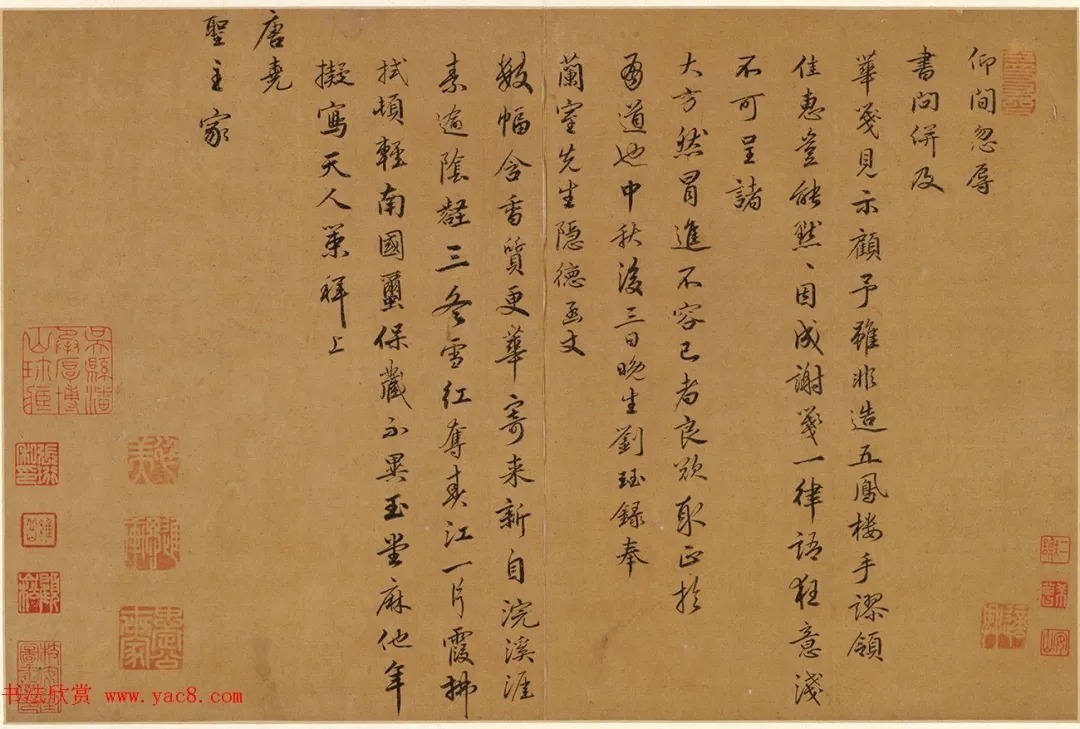 仰間忽辱
書問併及
華箋見示顧予雖非造五鳳樓手謬領
佳惠豈能默默因成謝箋一律語狂意淺
不可呈諸
大方然冒進不容已者良欲取正於
有道也中秋後三日晚生劉珏錄奉
蘭室先生隱德函丈
數幅含香質更華寄来新自浣溪涯
素逾陰壑三冬雪紅奪春江一片霞拂
拭頓輕南國璽保藏不異玉堂麻他年
擬寫天人策拜上
唐堯
聖主家
书法欣赏 www.yac8.com